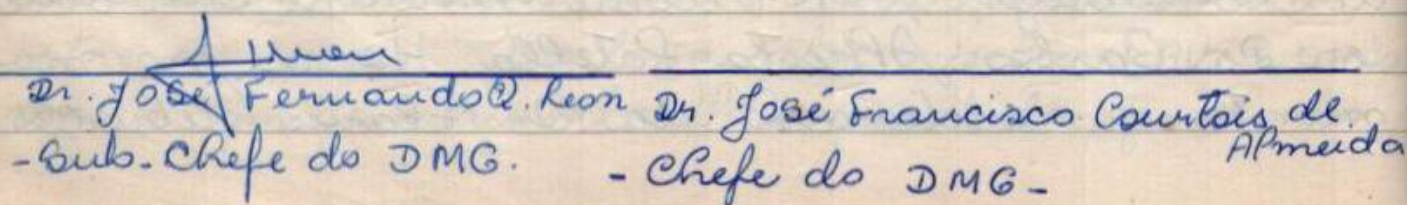 Dr. José Fernando Q. Leon
- Sub-Chefe do DMG.
Dr. José Francisco Courtois de
Almeida
- Chefe do DMG -